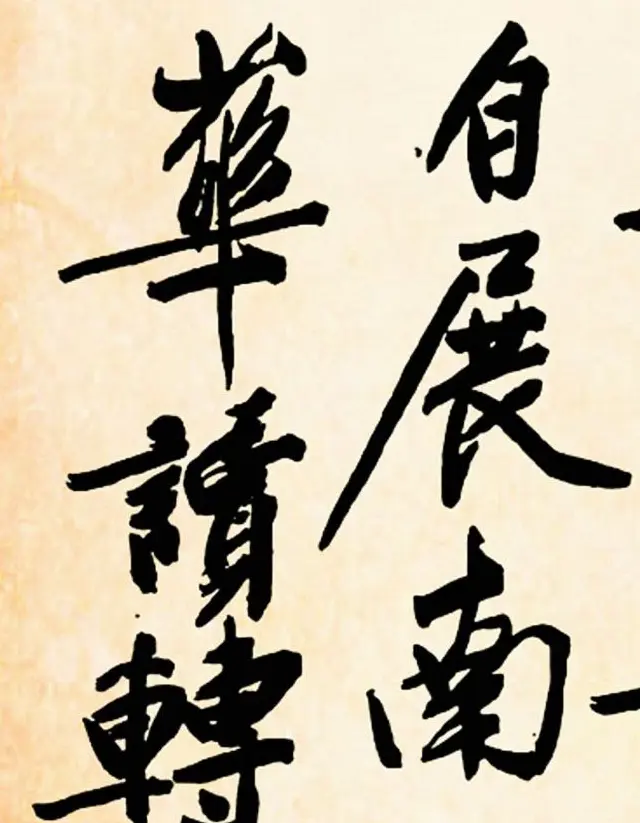 自展南
華讀轉